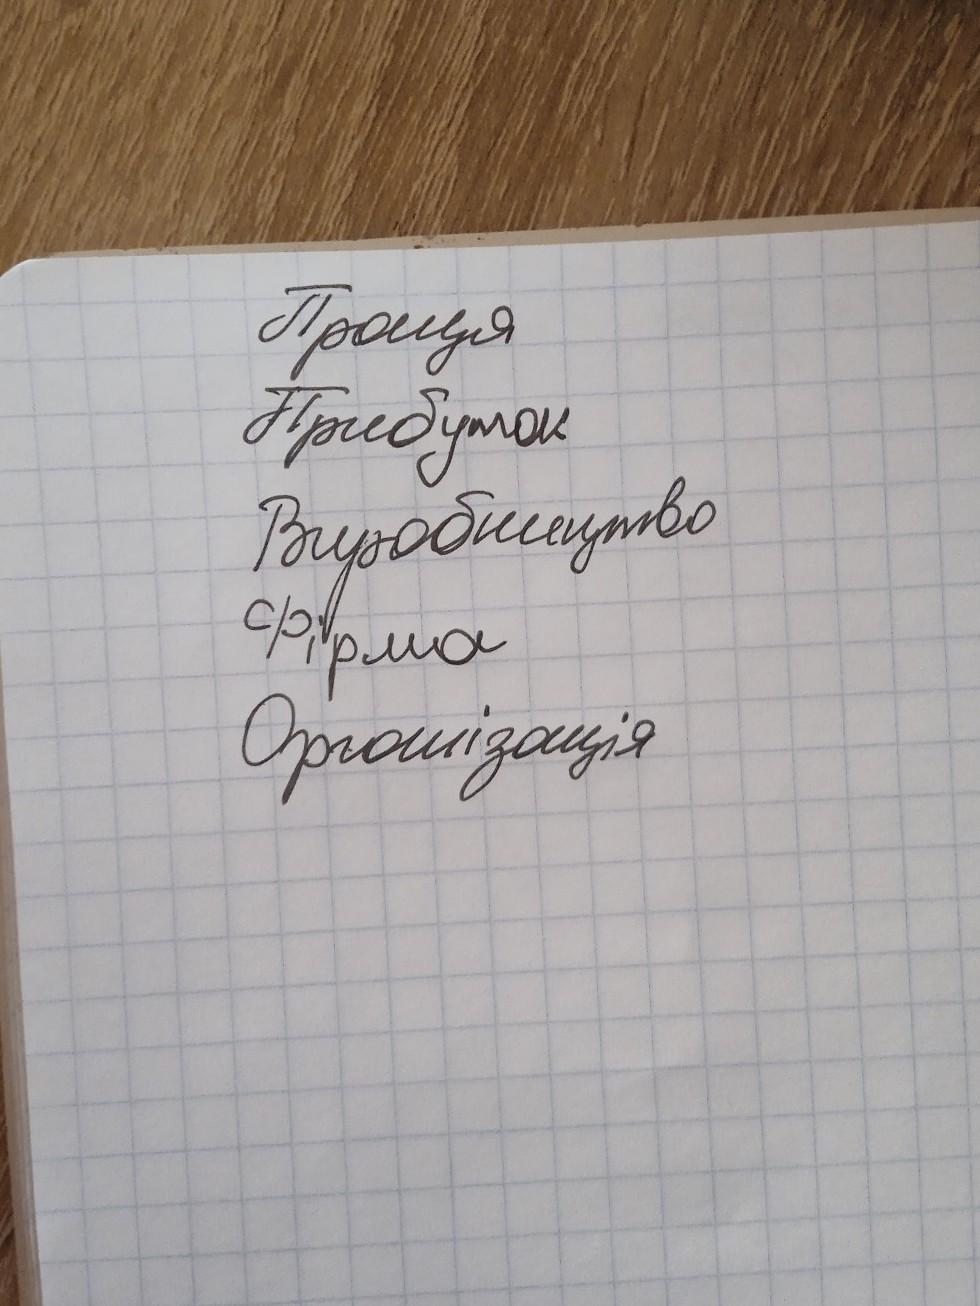 Праця
Прибуток
Виробництво
Фірма
Організація